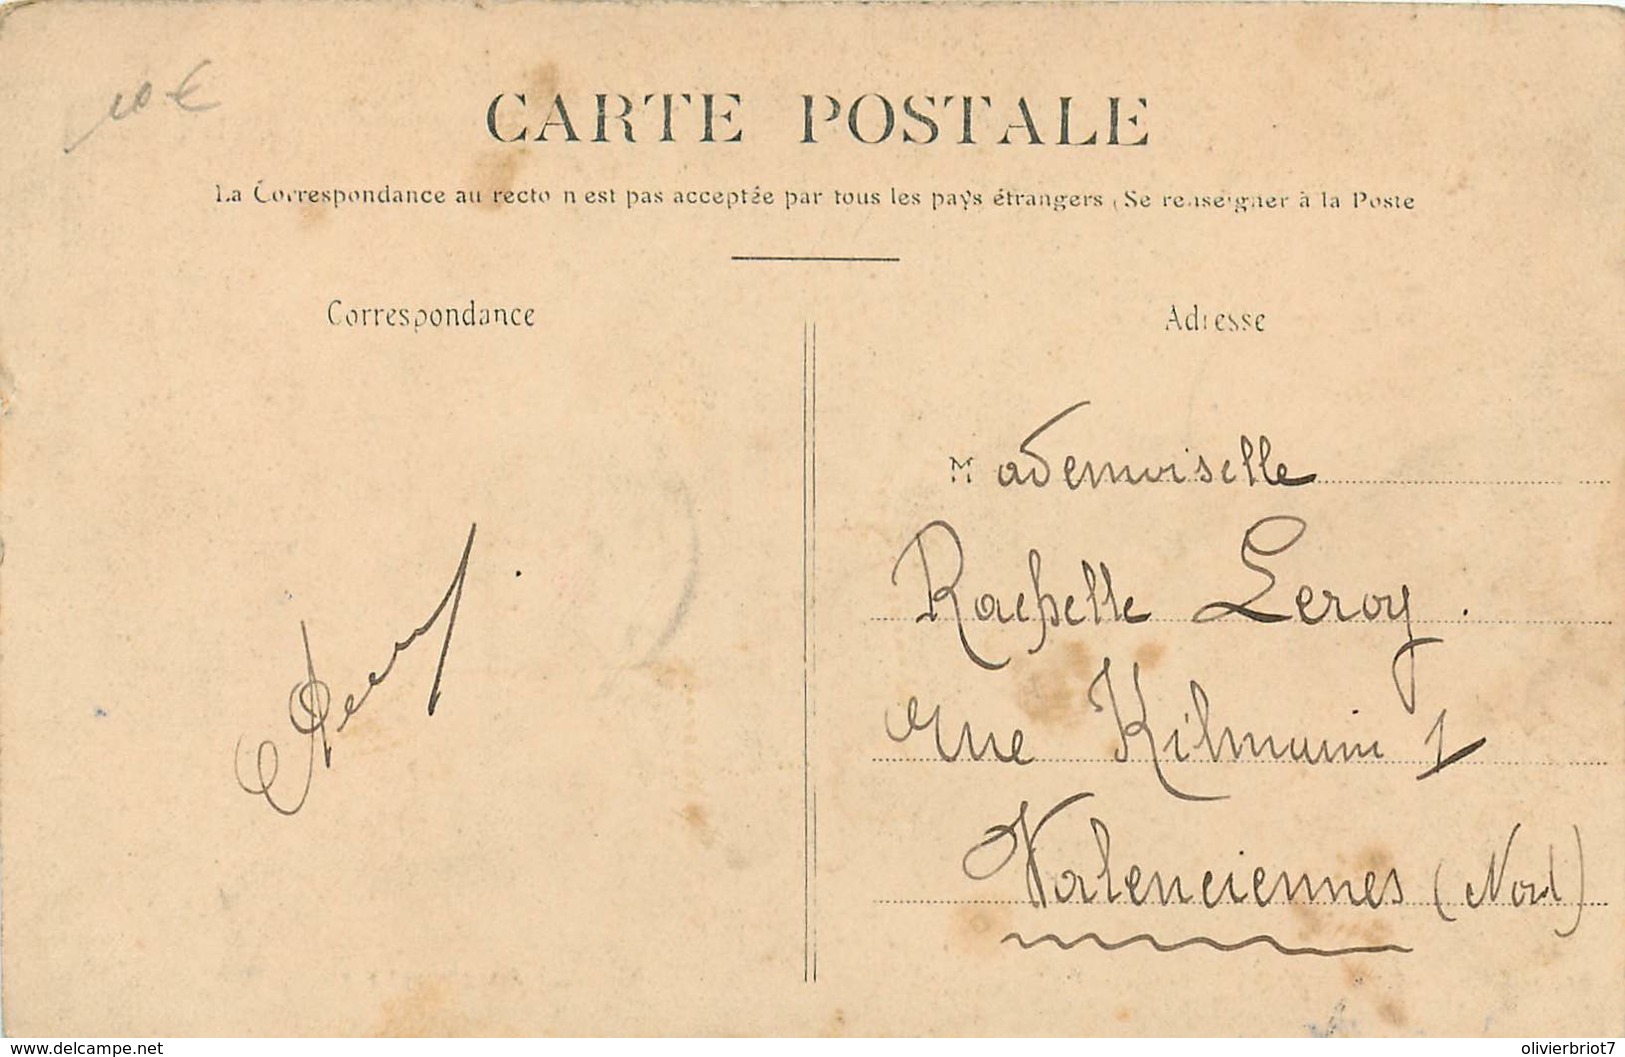 10 €
CARTE POSTALE
La Correspondance au recto n'est pas acceptée par tous les pays étrangers (Se renseigner à la Poste
Correspondance
Adresse
Mademoiselle
Rachelle Leroy.
rue Kilmaine 1
Valenciennes (Nord)
www.delcampe.net
olivierbriot7